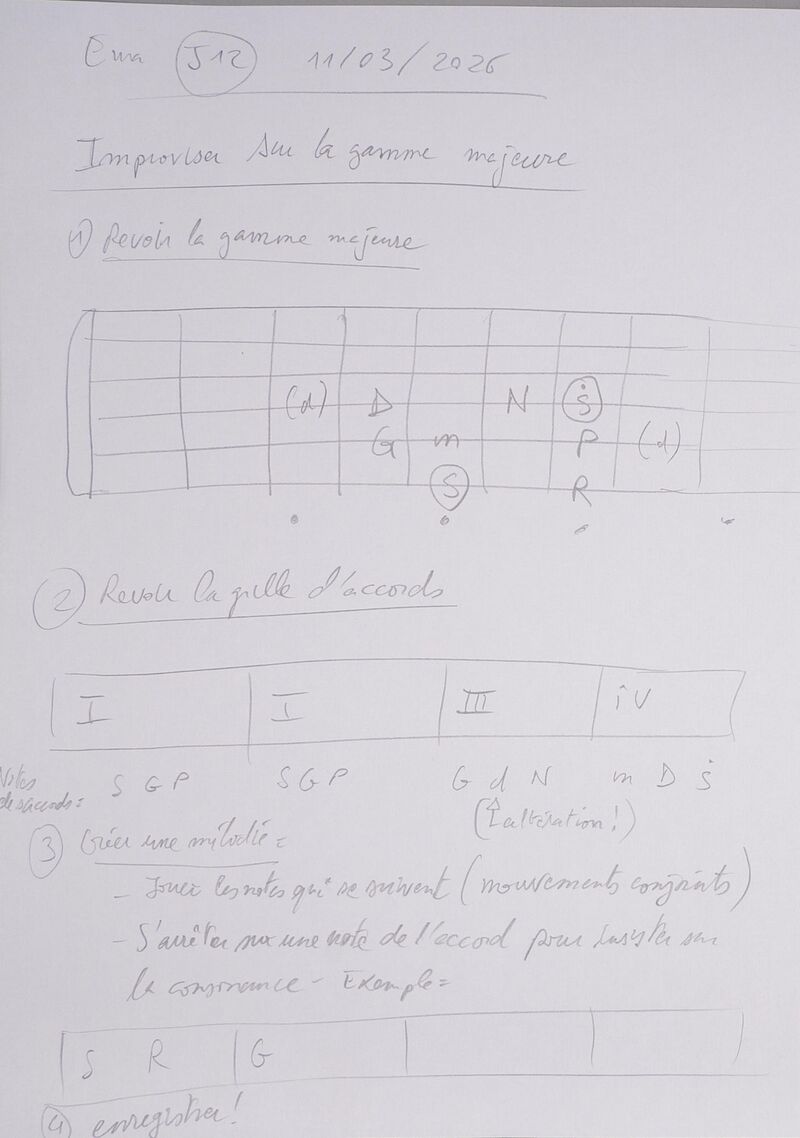 Ema J12 11/03/2026
Improviser sur la gamme majeure
1 Revoir la gamme majeure
(d) D N Ṡ
G m P (d)
S R
2 Revoir la grille d'accords
I I III iV
Notes S G P S G P G d N m D Ṡ
d'accords: (↑altération!)
3 Créer une mélodie:
- Jouer les notes qui se suivent (mouvements conjoints)
- S'arrêter sur une note de l'accord pour insister sur
la consonance - Exemple:
S R G
4 enregistrer!